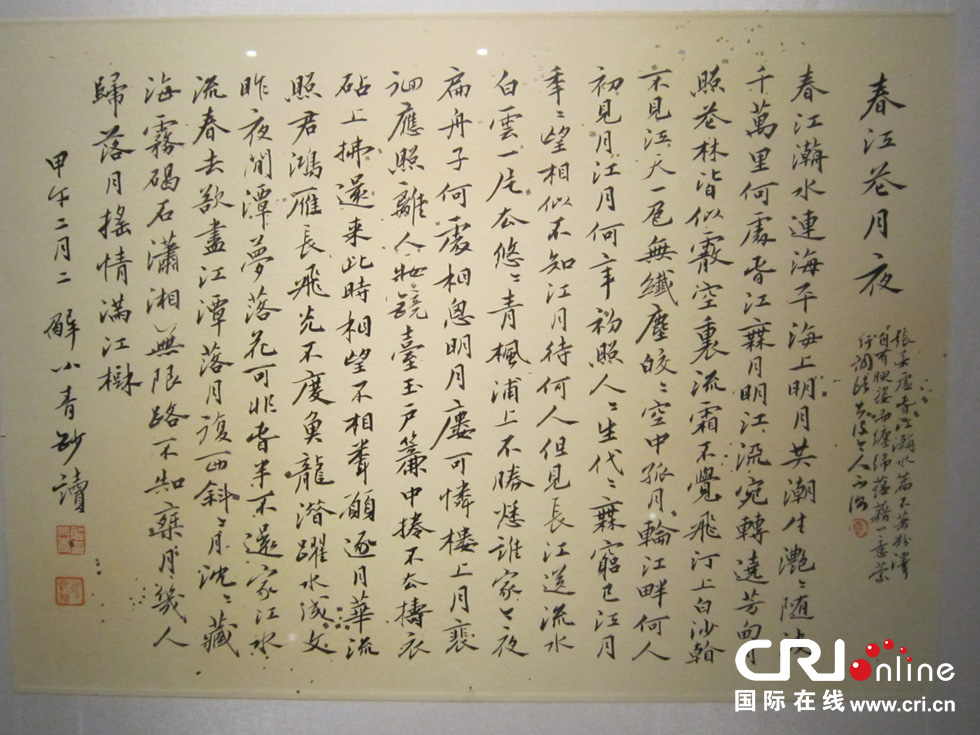 春江花月夜
張若虛春江潮水篇不著粉澤
自有腴姿而纏綿蘊藉一意縈
紆調法出没令人不測
春江潮水連海平海上明月共潮生灩〻随波
千萬里何處春江無月明江流宛轉遶芳甸月
照花林皆似霰空裏流霜不覺飛汀上白沙看
不見江天一色無纖塵皎〻空中孤月輪江畔何人
初見月江月何年初照人〻生代〻無窮已江月
年〻望相似不知江月待何人但見長江送流水
白雲一片去悠〻青楓浦上不勝愁誰家今夜
扁舟子何處相思明月樓可憐樓上月裵
佪應照離人妝鏡臺玉户簾中捲不去擣衣
砧上拂還来此時相望不相聞願逐月華流
照君鴻雁長飛光不度魚龍潛躍水成文
昨夜閒潭夢落花可憐春半不還家江水
流春去欲盡江潭落月復西斜〻月沈〻藏
海霧碣石瀟湘無限路不知乘月幾人
歸落月摇情滿江樹
甲午二月二 解小青鈔讀
CRI online
国际在线 www.cri.cn